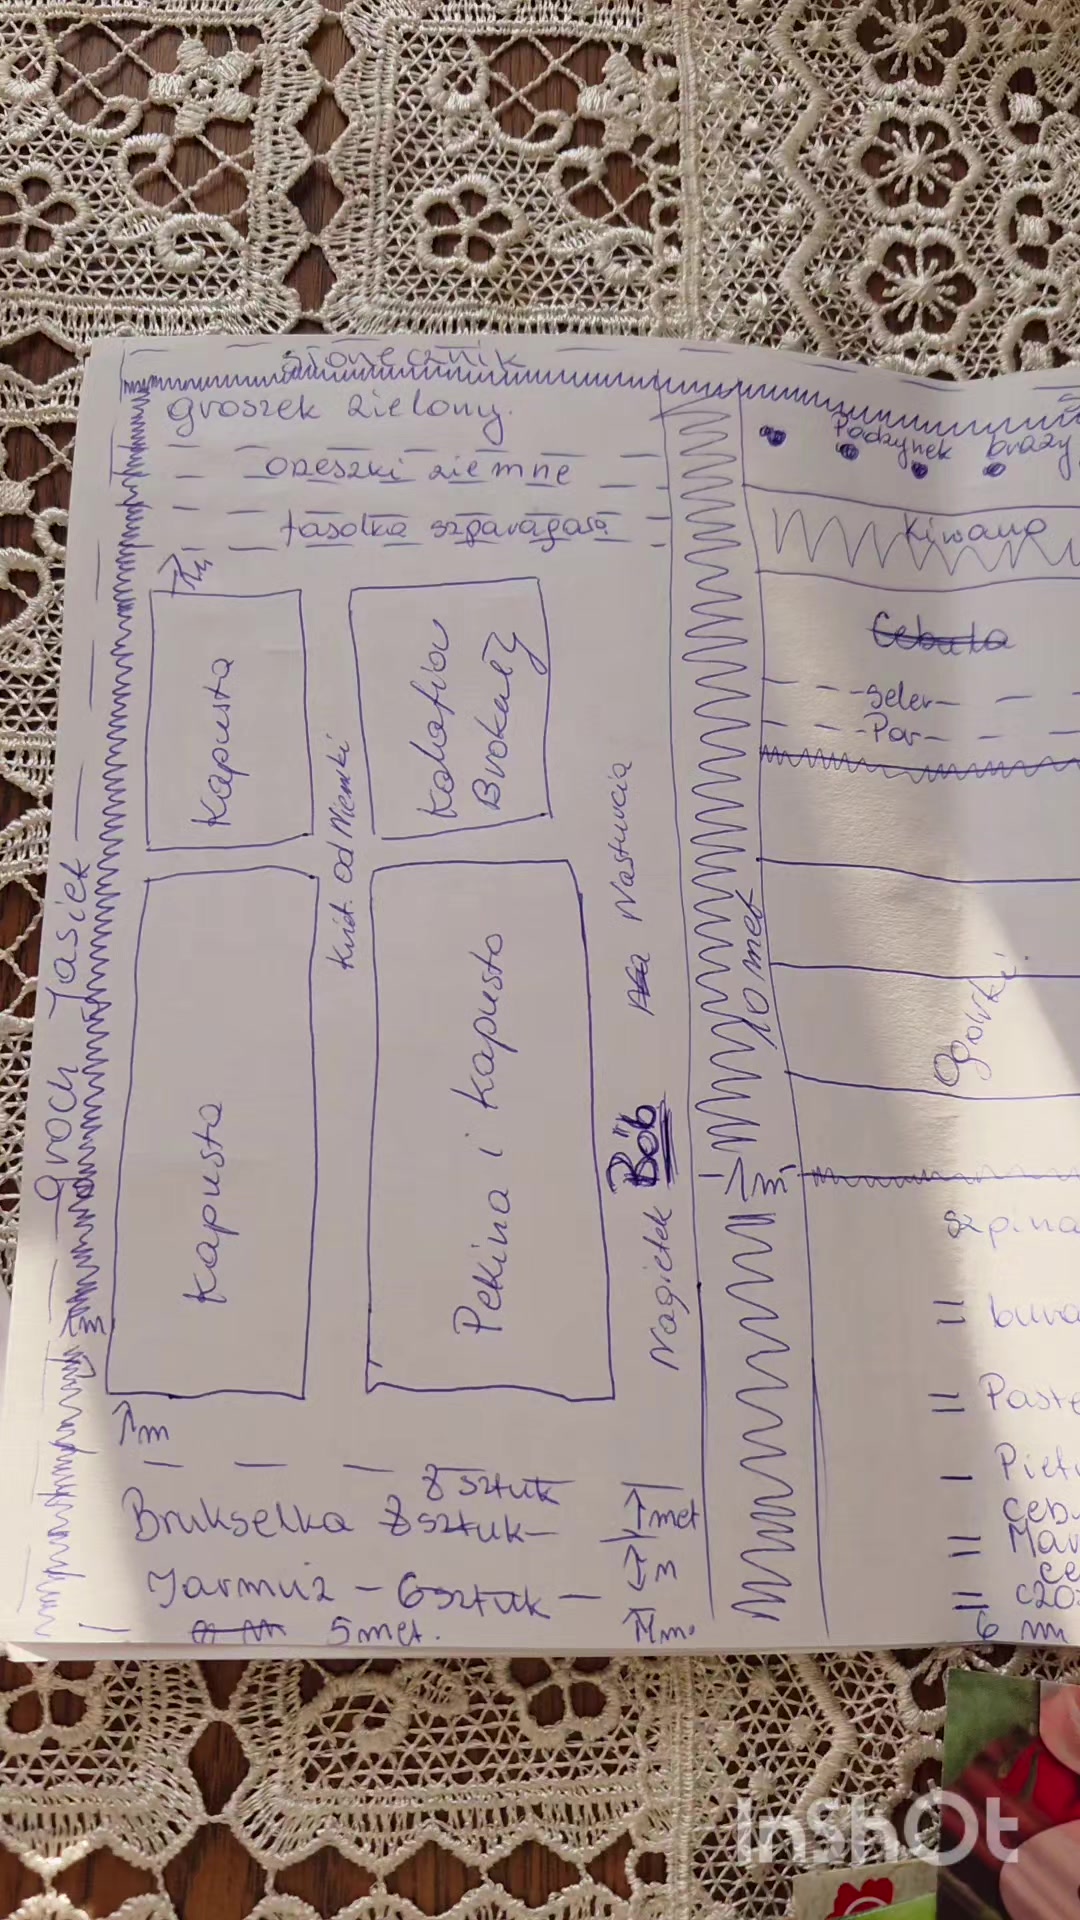 słonecznik
groszek zielony.
orzeszki ziemne
fasolka szparagasa
1m
Kapusta
Kalafior
Brokuły
Kwit. od Niemki
Nastuwcia
groch Jasiek
Kapusta
Pekina i kapusta
Nagietek Bób
10 met
1m
1m
1m
8 sztuk
Brukselka 8 sztuk
Jarmuż - 6 sztuk
5 met.
1 met
1m
1m.
Padzynek
brazy
Kiwano
Cebula
seler
Por
Ogórki
szpina
bura
Paste
Piet
ceb
Mar
ce
czo
6 m
InShOt